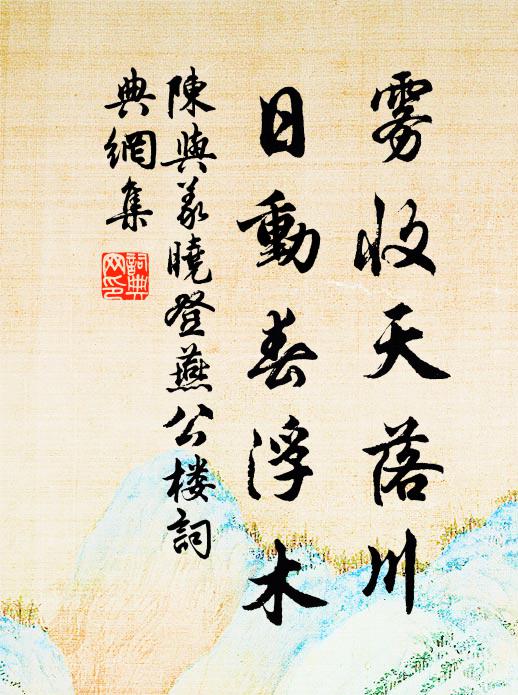 雾收天落川
日動春浮木
陳與義曉登燕公楼詞
典網集
詞典網印